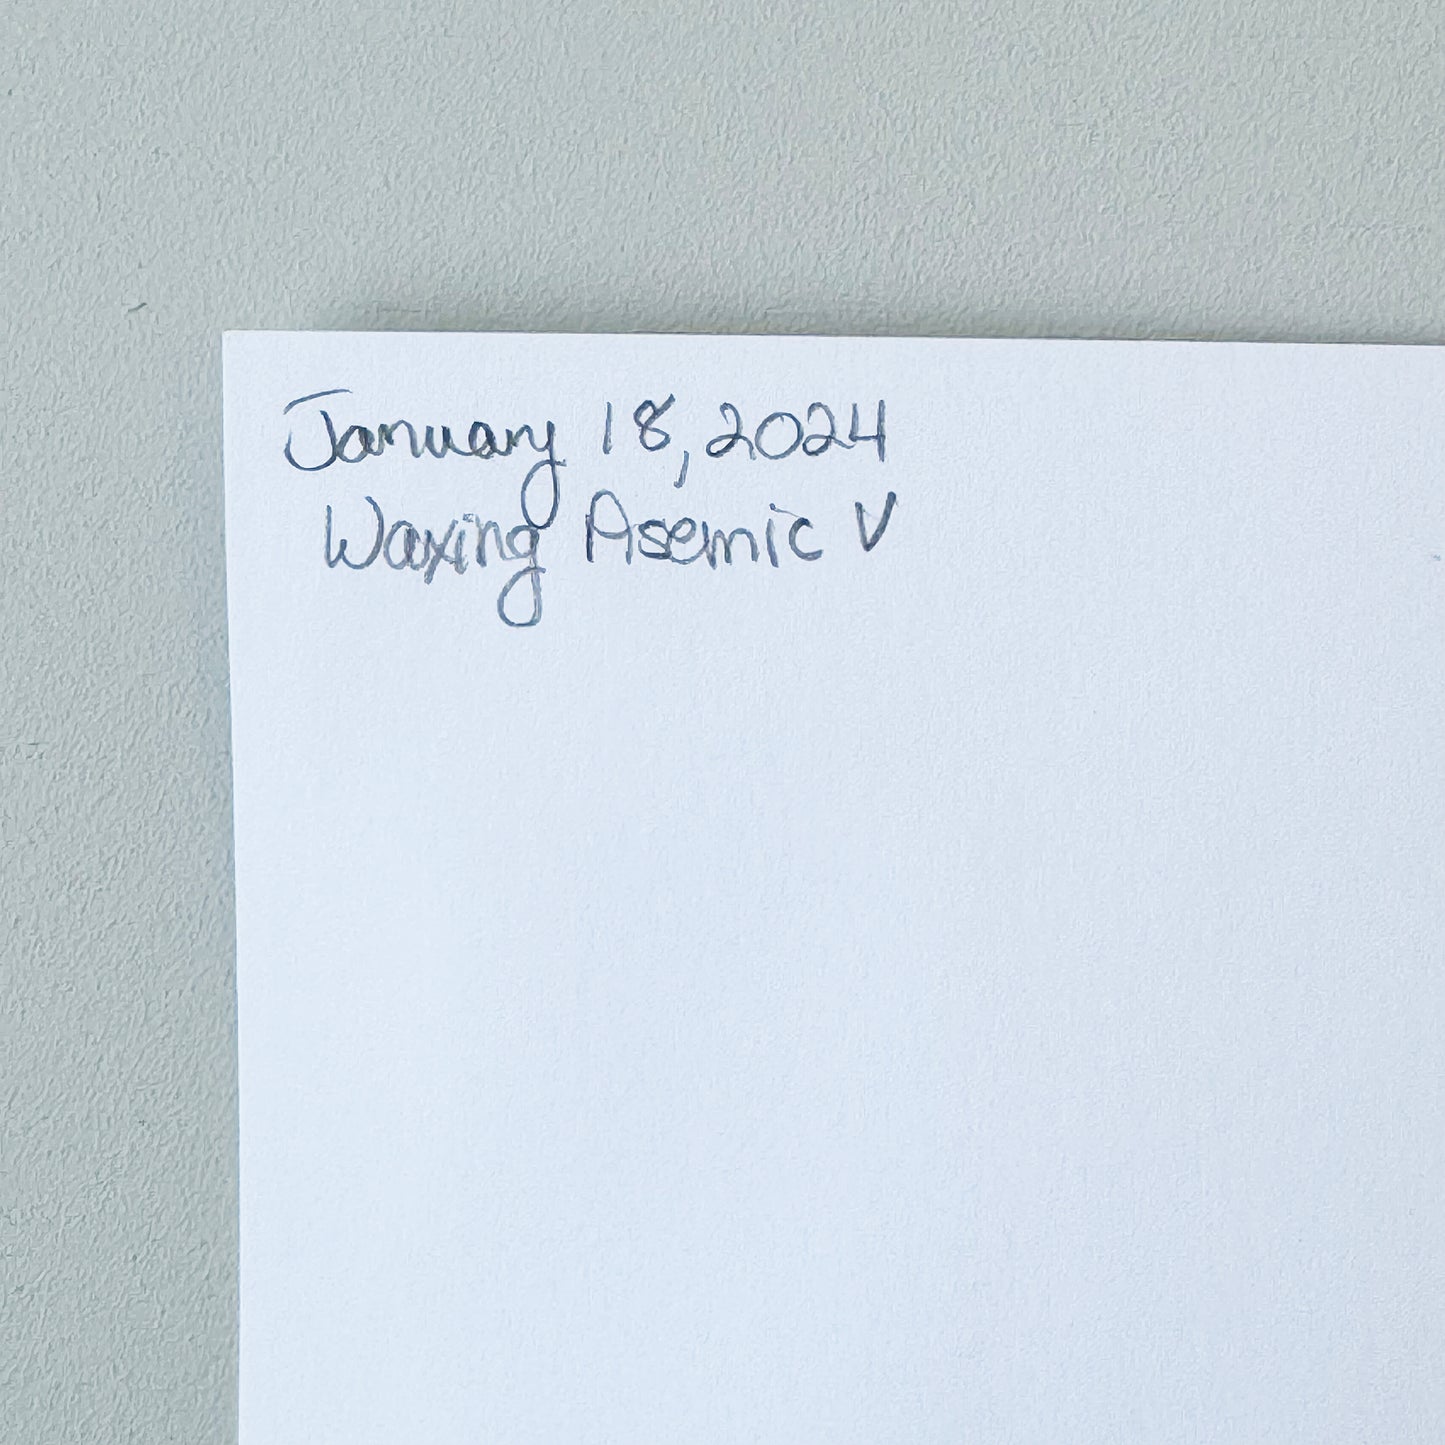 January 18, 2024
Waxing Asemic V